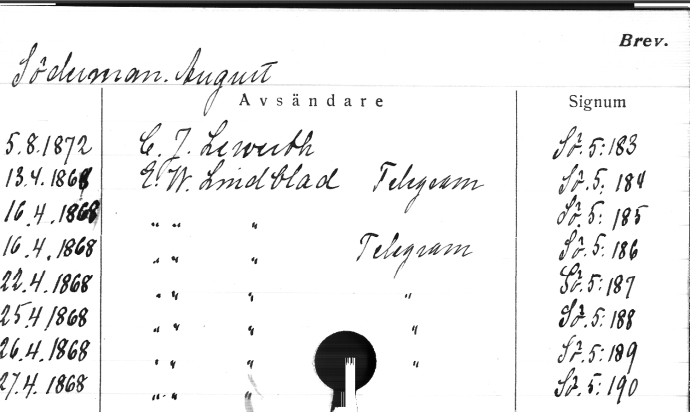 Brev.
Söderman. August
Avsändare Signum
5.8.1872 C. J. Lewerth Sö. 5:183
13.4.1868 E. W. Lindblad Telegram Sö. 5. 184
16.4.1868 „ „ „ Sö. 5: 185
16.4.1868 „ „ „ Telegram Sö. 5: 186
22.4.1868 „ „ „ „ Sö. 5: 187
25.4.1868 „ „ „ „ Sö. 5: 188
26.4.1868 „ „ „ „ Sö. 5: 189
27.4.1868 „ „ „ Sö. 5: 190